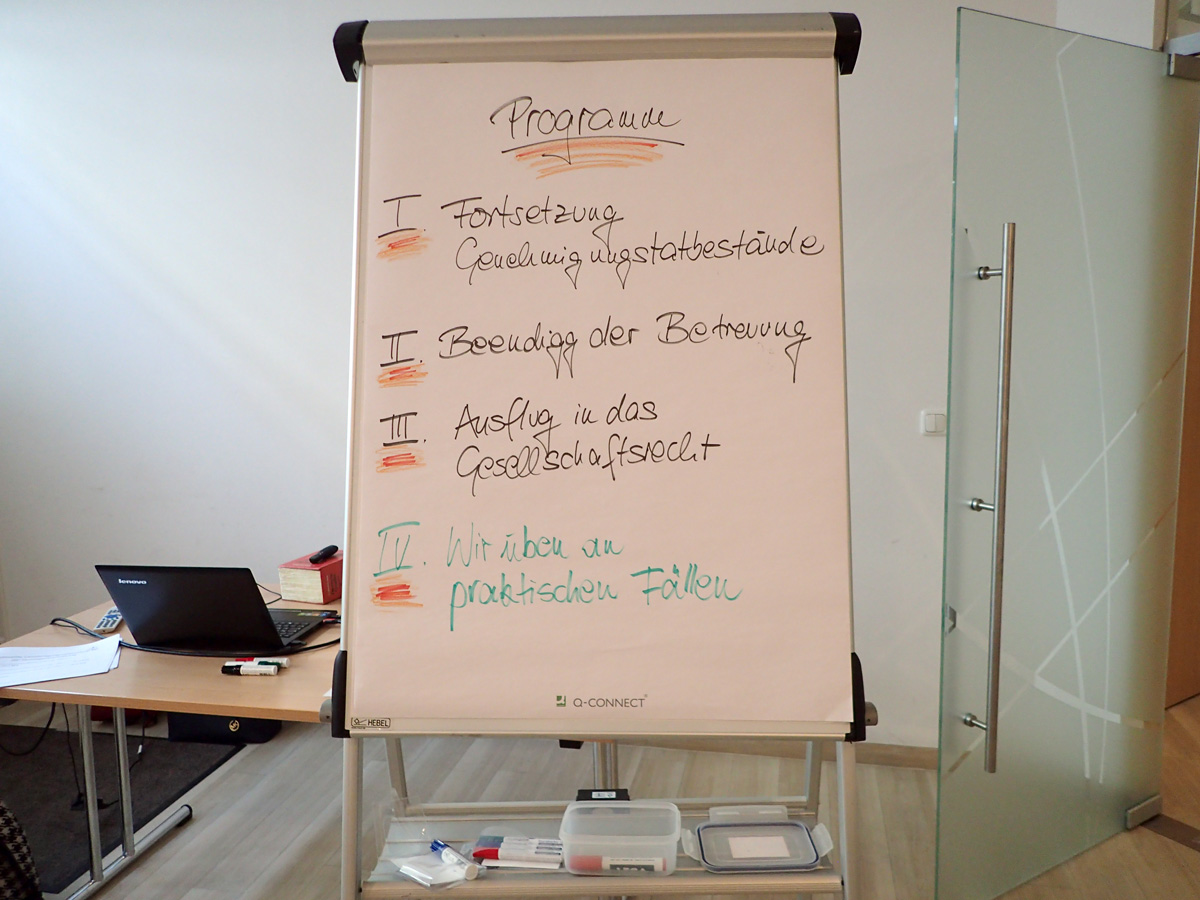 Programm
I. Fortsetzung
Genehmigungstatbestände
II. Beendigg der Betreuung
III. Ausflug in das
Gesellschaftsrecht
IV. Wir üben an
praktischen Fällen
Q-CONNECT®
HEBEL
lenovo